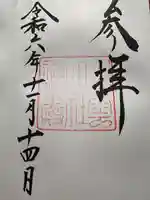 参拝
令和六年十一月十四日